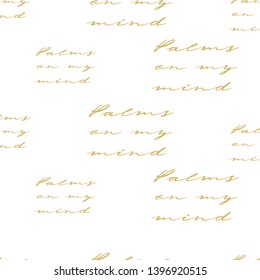 on my
mind
Palms
on my
mind
Palms
on my
mind
Palms
on my
mind
Palms
on my
mind
Palms
on my
mind
Palms
on my
mind
www.shutterstock.com · 1396920515